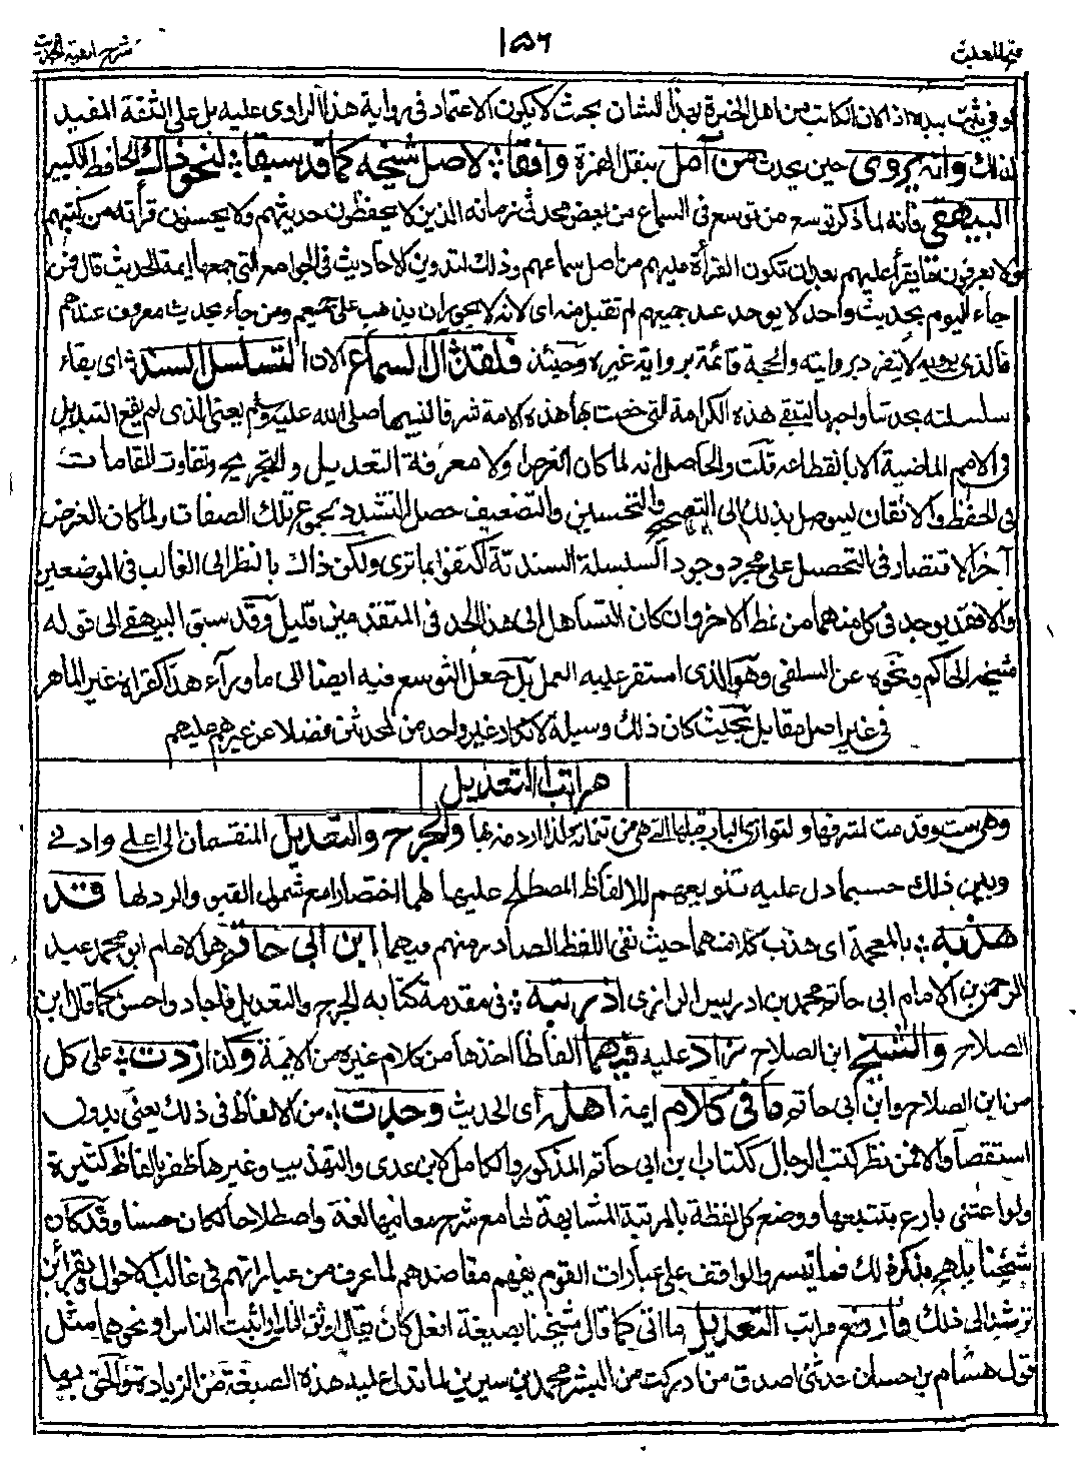 فتح المغيث
١٥٦
شرح الفية الحديث
او في ثبت بيده اذ كان الكاتب من اهل الخبرة بهذا الشان بحيث لا يكون الاعتماد في رواية هذا الراوى عليه بل على الثقة المفيد
لذلك وانه يروى حين يحدث من اصل بنقل الهمزة وافقا لاصل شيخه كما قد سبقا لنحو ذاك الحافظ الكبير
البيهقي فانه لما ذكر توسع من توسع في السماع من بعض محدثي زمانه الذين لا يحفظون حديثهم ولا يحسنون قرأته من كتبهم
ولا يعرفون ما يقرأ عليهم بعد ان تكون القرأة عليهم من اصل سماعهم وذلك لتدوين الاحاديث في الجوامع التي جمعها ايمة الحديث قال فمن
جاء اليوم بحديث واحد لا يوجد عند جميعهم لم تقبل منه اى لانه لا يجوز ان يذهب على جميعهم ومن جاء بحديث معروف عندهم
فالذى يرويه لا ينفرد بروايته والحجة قائمة برواية غيره وحينئذ فلقد آل السماع الان لتسلسل السند اى بقاء
سلسلته بحدثنا واخبرنا لتبقى هذه الكرامة التي خصت بها هذه الامة شرفا لنبيها صلى الله عليه وسلم يعني الذى لم يقع التبديل
في الامم الماضية الا بانقطاعه قلت والحاصل انه لما كان الغرض اولا معرفة التعديل والتجريح وتفاوت المقامات
في الحفظ والاتقان ليتوصل بذلك الى التصحيح والتحسين والتضعيف حصل التشدد بمجموع تلك الصفات ولما كان الغرض
آخرا الاقتصار في التحصيل على مجرد وجود السلسلة السندية اكتفوا بما ترى ولكن ذاك بالنظر الى الغالب في الموضعين
والا فقد يوجد في كل منهما من نمط الاخر وان كان التساهل الى هذا الحد في المتقدمين قليل وقد سبق البيهقي الى قوله
شيخه الحاكم ونحوه عن السلفي وهو الذى استقر عليه العمل بل جعل التوسع فيه ايضا الى ما وراء هذا كقراءة غير الماهر
في غير اصل مقابل بحيث كان ذلك وسيلة لانكار غير واحد من المحدثين فضلا عن غيرهم عليهم
مراتب التعديل
وهي ست وقدمت لشرفها ولتوازى الباب قبلها التي هي من تتماته ولذا اردفه بها والجرح والتعديل المنقسمان الى اعلى وادنى
وبين ذلك حسبما دل عليه تنويعهم للالفاظ المصطلح عليها لهما اختصارا مع شمول القبول والرد لها قد
هذبه بالمعجمة اى هذب كلا منهما حيث نقى اللفظ الصادر منهم فيهما ابن ابي حاتم هو الامام ابو محمد عبد
الرحمن بن الامام ابي حاتم محمد بن ادريس الرازى اذ رتبه في مقدمة كتابه الجرح والتعديل فاجاد واحسن كما قال ابن
الصلاح والشيخ ابن الصلاح زاد عليه فيهما الفاظا اخذها من كلام غيره من الايمة وكذا زدت على كل
من ابن الصلاح وابن ابي حاتم ما في كلام ايمة اهله اى الحديث وجدت من الالفاظ في ذلك يعني بدون
استقصآ والا فمن نظر كتب الرجال ككتاب ابن ابي حاتم المذكور والكامل لابن عدى والتهذيب وغيرها ظفر بالفاظ كثيرة
ولو اعتنى بارع بتتبعها ووضع كل لفظة بالمرتبة المشابهة لها مع شرح معانيها لغة واصطلاحا لكان حسنا وقد كان
شيخنا يلهج بذكر ذلك فما تيسر والواقف على عبارات القوم يفهم مقاصدهم لما عرف من عباراتهم في غالب الاحوال وبقرائن
ترشد الى ذلك فارفع مراتب التعديل ما اتى كما قال شيخنا بصيغة افعل كان يقال اوثق الناس او اثبت الناس او نحوهما مثل
قول هشام بن حسان حدثني اصدق من ادركت من البشر محمد بن سيرين لما تدل عليه هذه الصيغة من الزيادة والحق بها